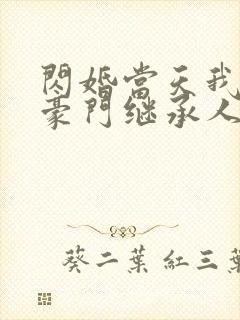 閃婚當天我
豪門继承人
葵二葉紅三葉